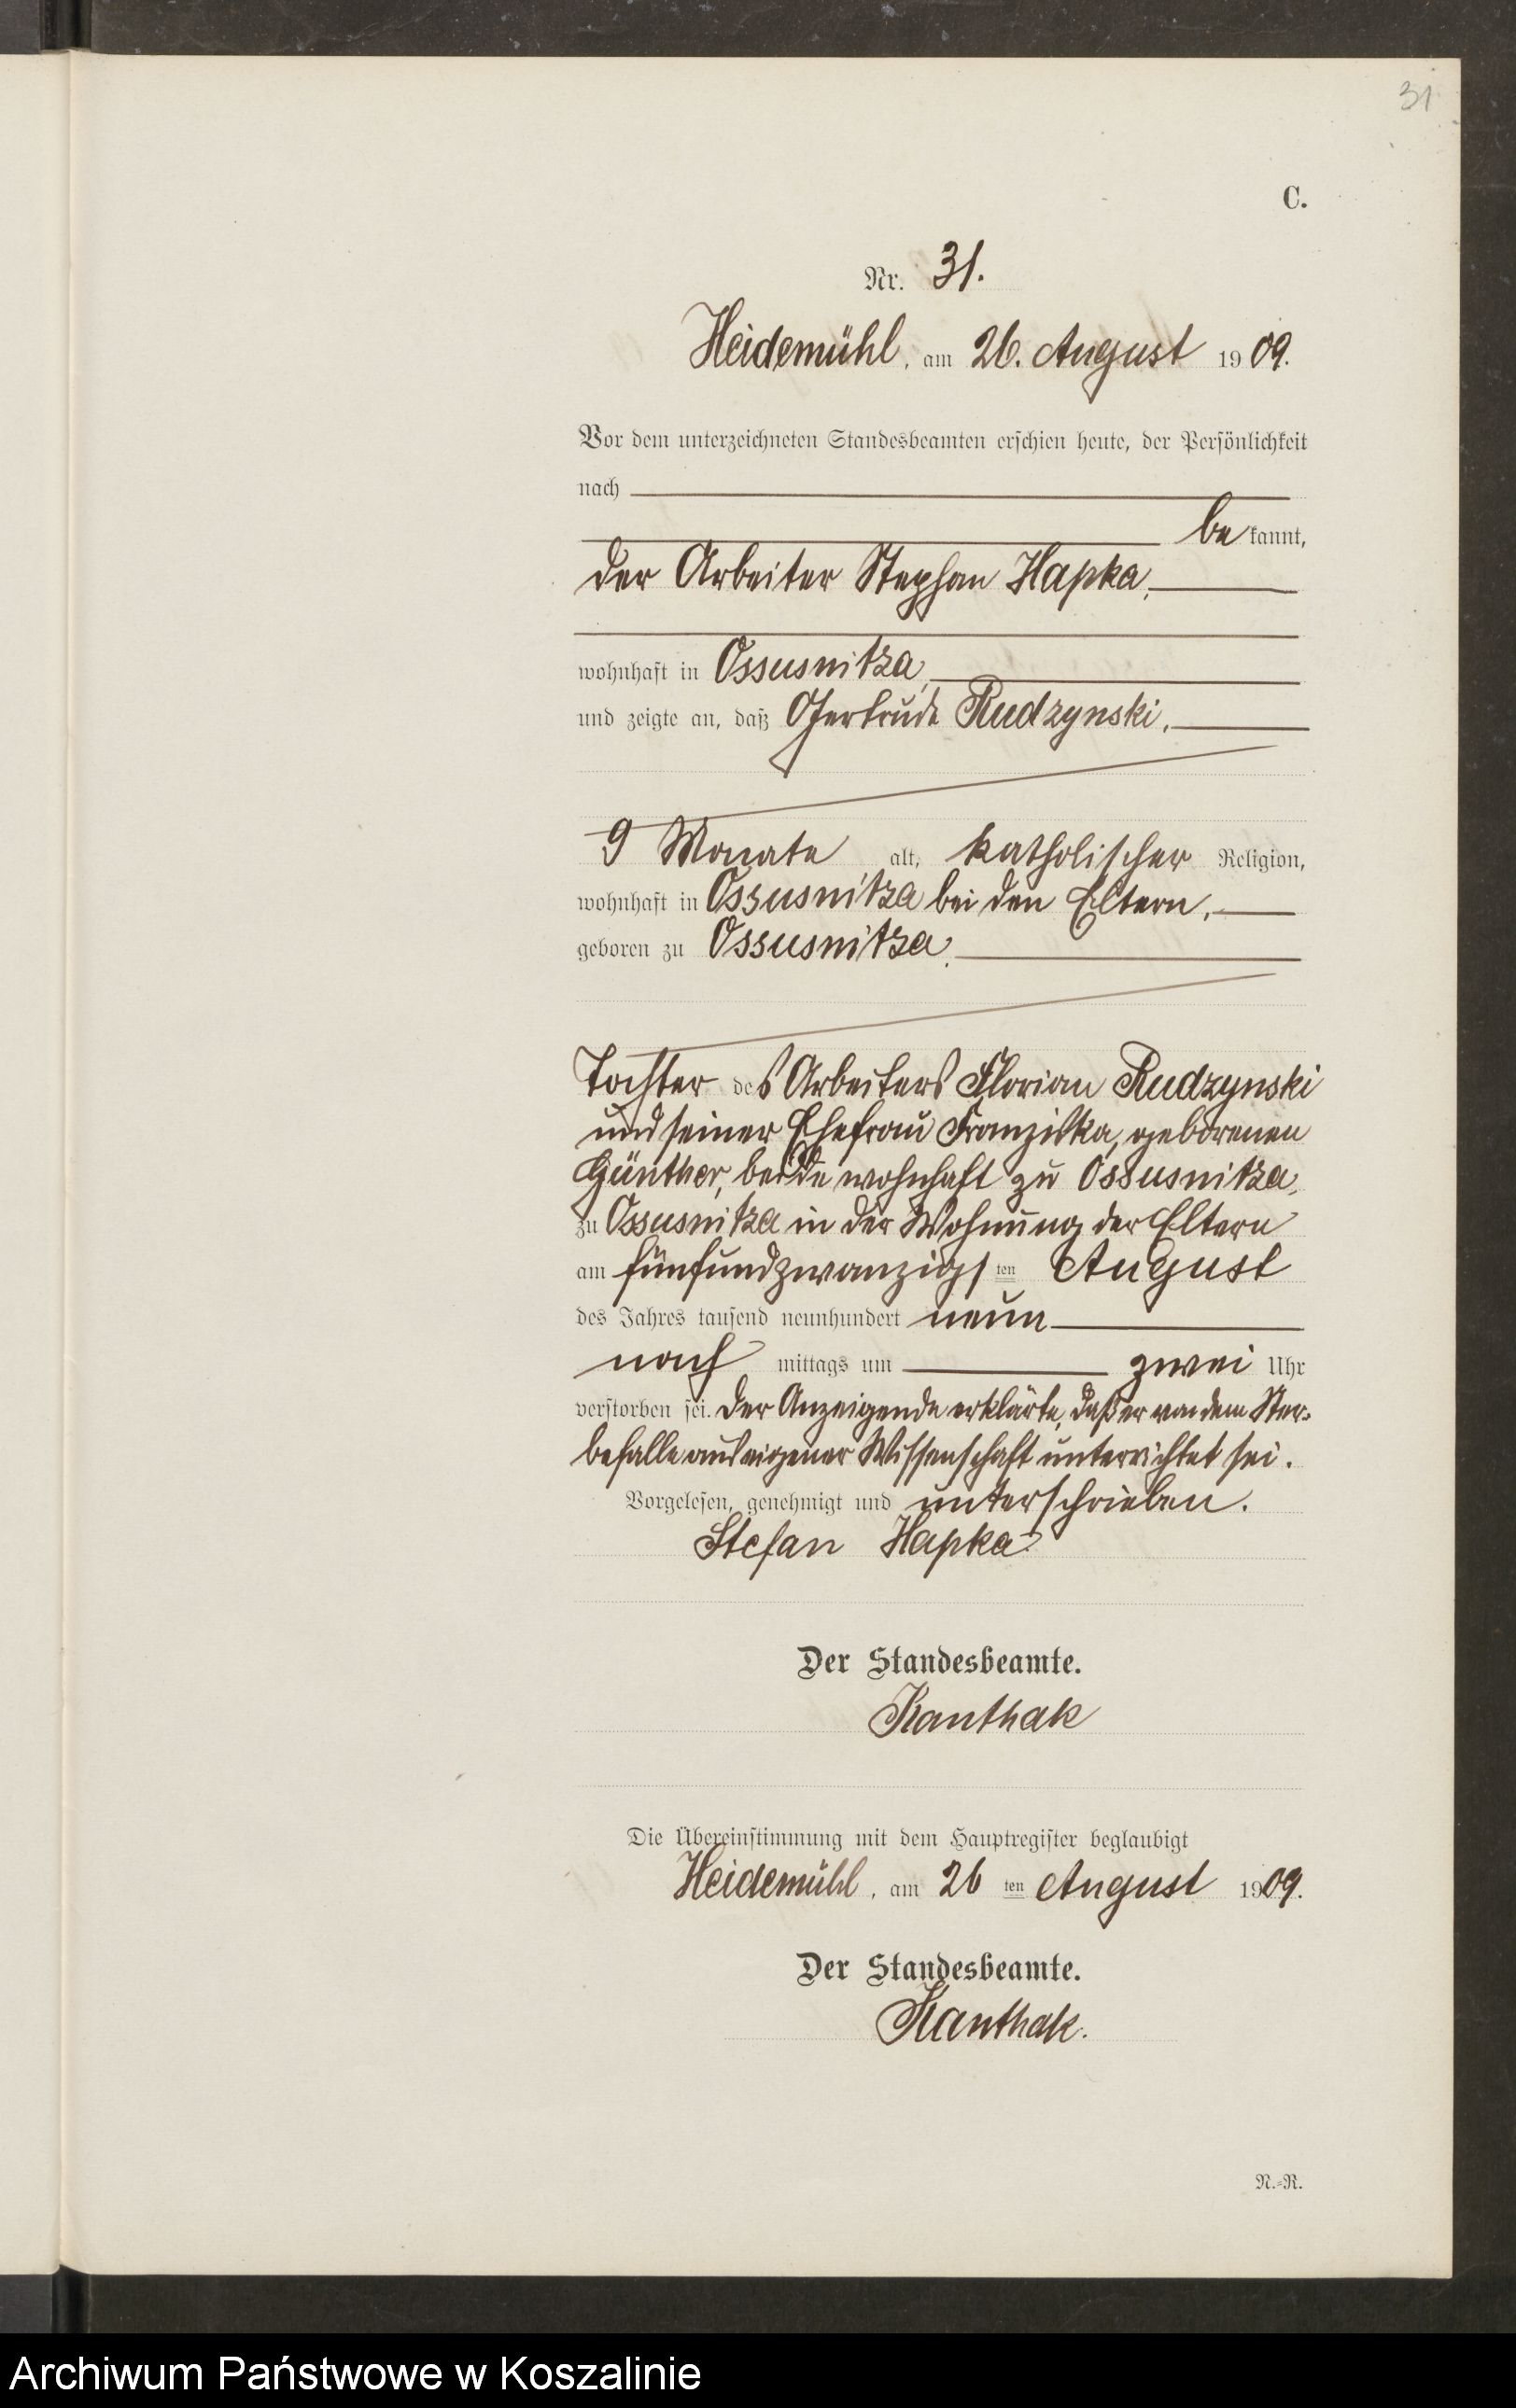 31
C.
Nr. 31.
Heidemühl, am 26. August 1909.
Vor dem unterzeichneten Standesbeamten erschien heute, der Persönlichkeit
nach
be kannt,
der Arbeiter Stephan Hapka,
wohnhaft in Ossusnitza,
und zeigte an, daß Gertrude Rudzynski,
9 Monate alt, katholischer Religion,
wohnhaft in Ossusnitza bei den Eltern,
geboren zu Ossusnitza,
Tochter des Arbeiters Florian Rudzynski
und seiner Ehefrau Franziska, geborenen
Günther, beide wohnhaft zu Ossusnitza,
zu Ossusnitza in der Wohnung der Eltern
am fünfundzwanzigsten August
des Jahres tausend neunhundert neun
nach mittags um zwei Uhr
verstorben sei. Der Anzeigende erklärte, daß er von dem Ster-
befalle aus eigener Wissenschaft unterrichtet sei.
Vorgelesen, genehmigt und unterschrieben.
Stefan Hapka
Der Standesbeamte.
Kanthak
Die Übereinstimmung mit dem Hauptregister beglaubigt
Heidemühl, am 26 ten August 1909.
Der Standesbeamte.
Kanthak.
N.-R.
Archiwum Państwowe w Koszalinie